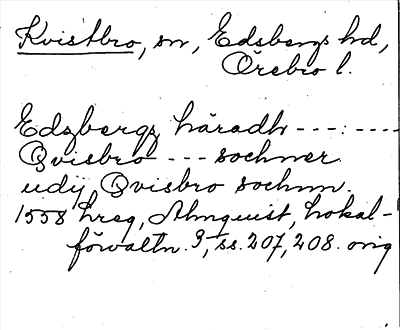 Kvistbro, sn, Edsbergs hd,
Örebro l.
Edzbergz häradh ---:----
Qvisbro --- sochner
udij Qvisbro sochnn.
1558 hreg, Almquist, Lokal-
förvaltn. 3, ss. 207, 208. orig